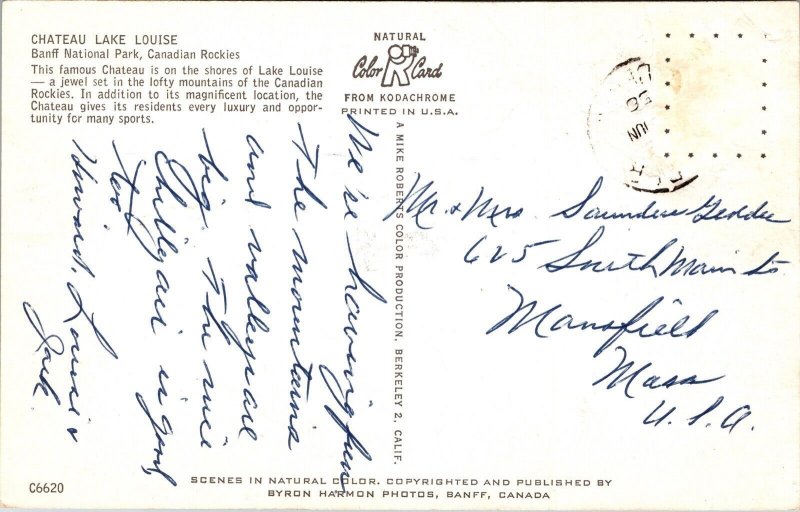 CHATEAU LAKE LOUISE
Banff National Park, Canadian Rockies
This famous Chateau is on the shores of Lake Louise
— a jewel set in the lofty mountains of the Canadian
Rockies. In addition to its magnificent location, the
Chateau gives its residents every luxury and oppor-
tunity for many sports.
NATURAL
Color Card
FROM KODACHROME
PRINTED IN U.S.A.
A MIKE ROBERTS COLOR PRODUCTION. BERKELEY 2, CALIF.
JUN
We're having fun
The mountains
and valleys are
big. The nice
Chilly air is good,
too
Howard, Louise &
Jack
Mr. & Mrs. Saunders Geddee
625 South Main St
Mansfield
Mass
U.S.A.
C6620
SCENES IN NATURAL COLOR. COPYRIGHTED AND PUBLISHED BY
BYRON HARMON PHOTOS, BANFF, CANADA